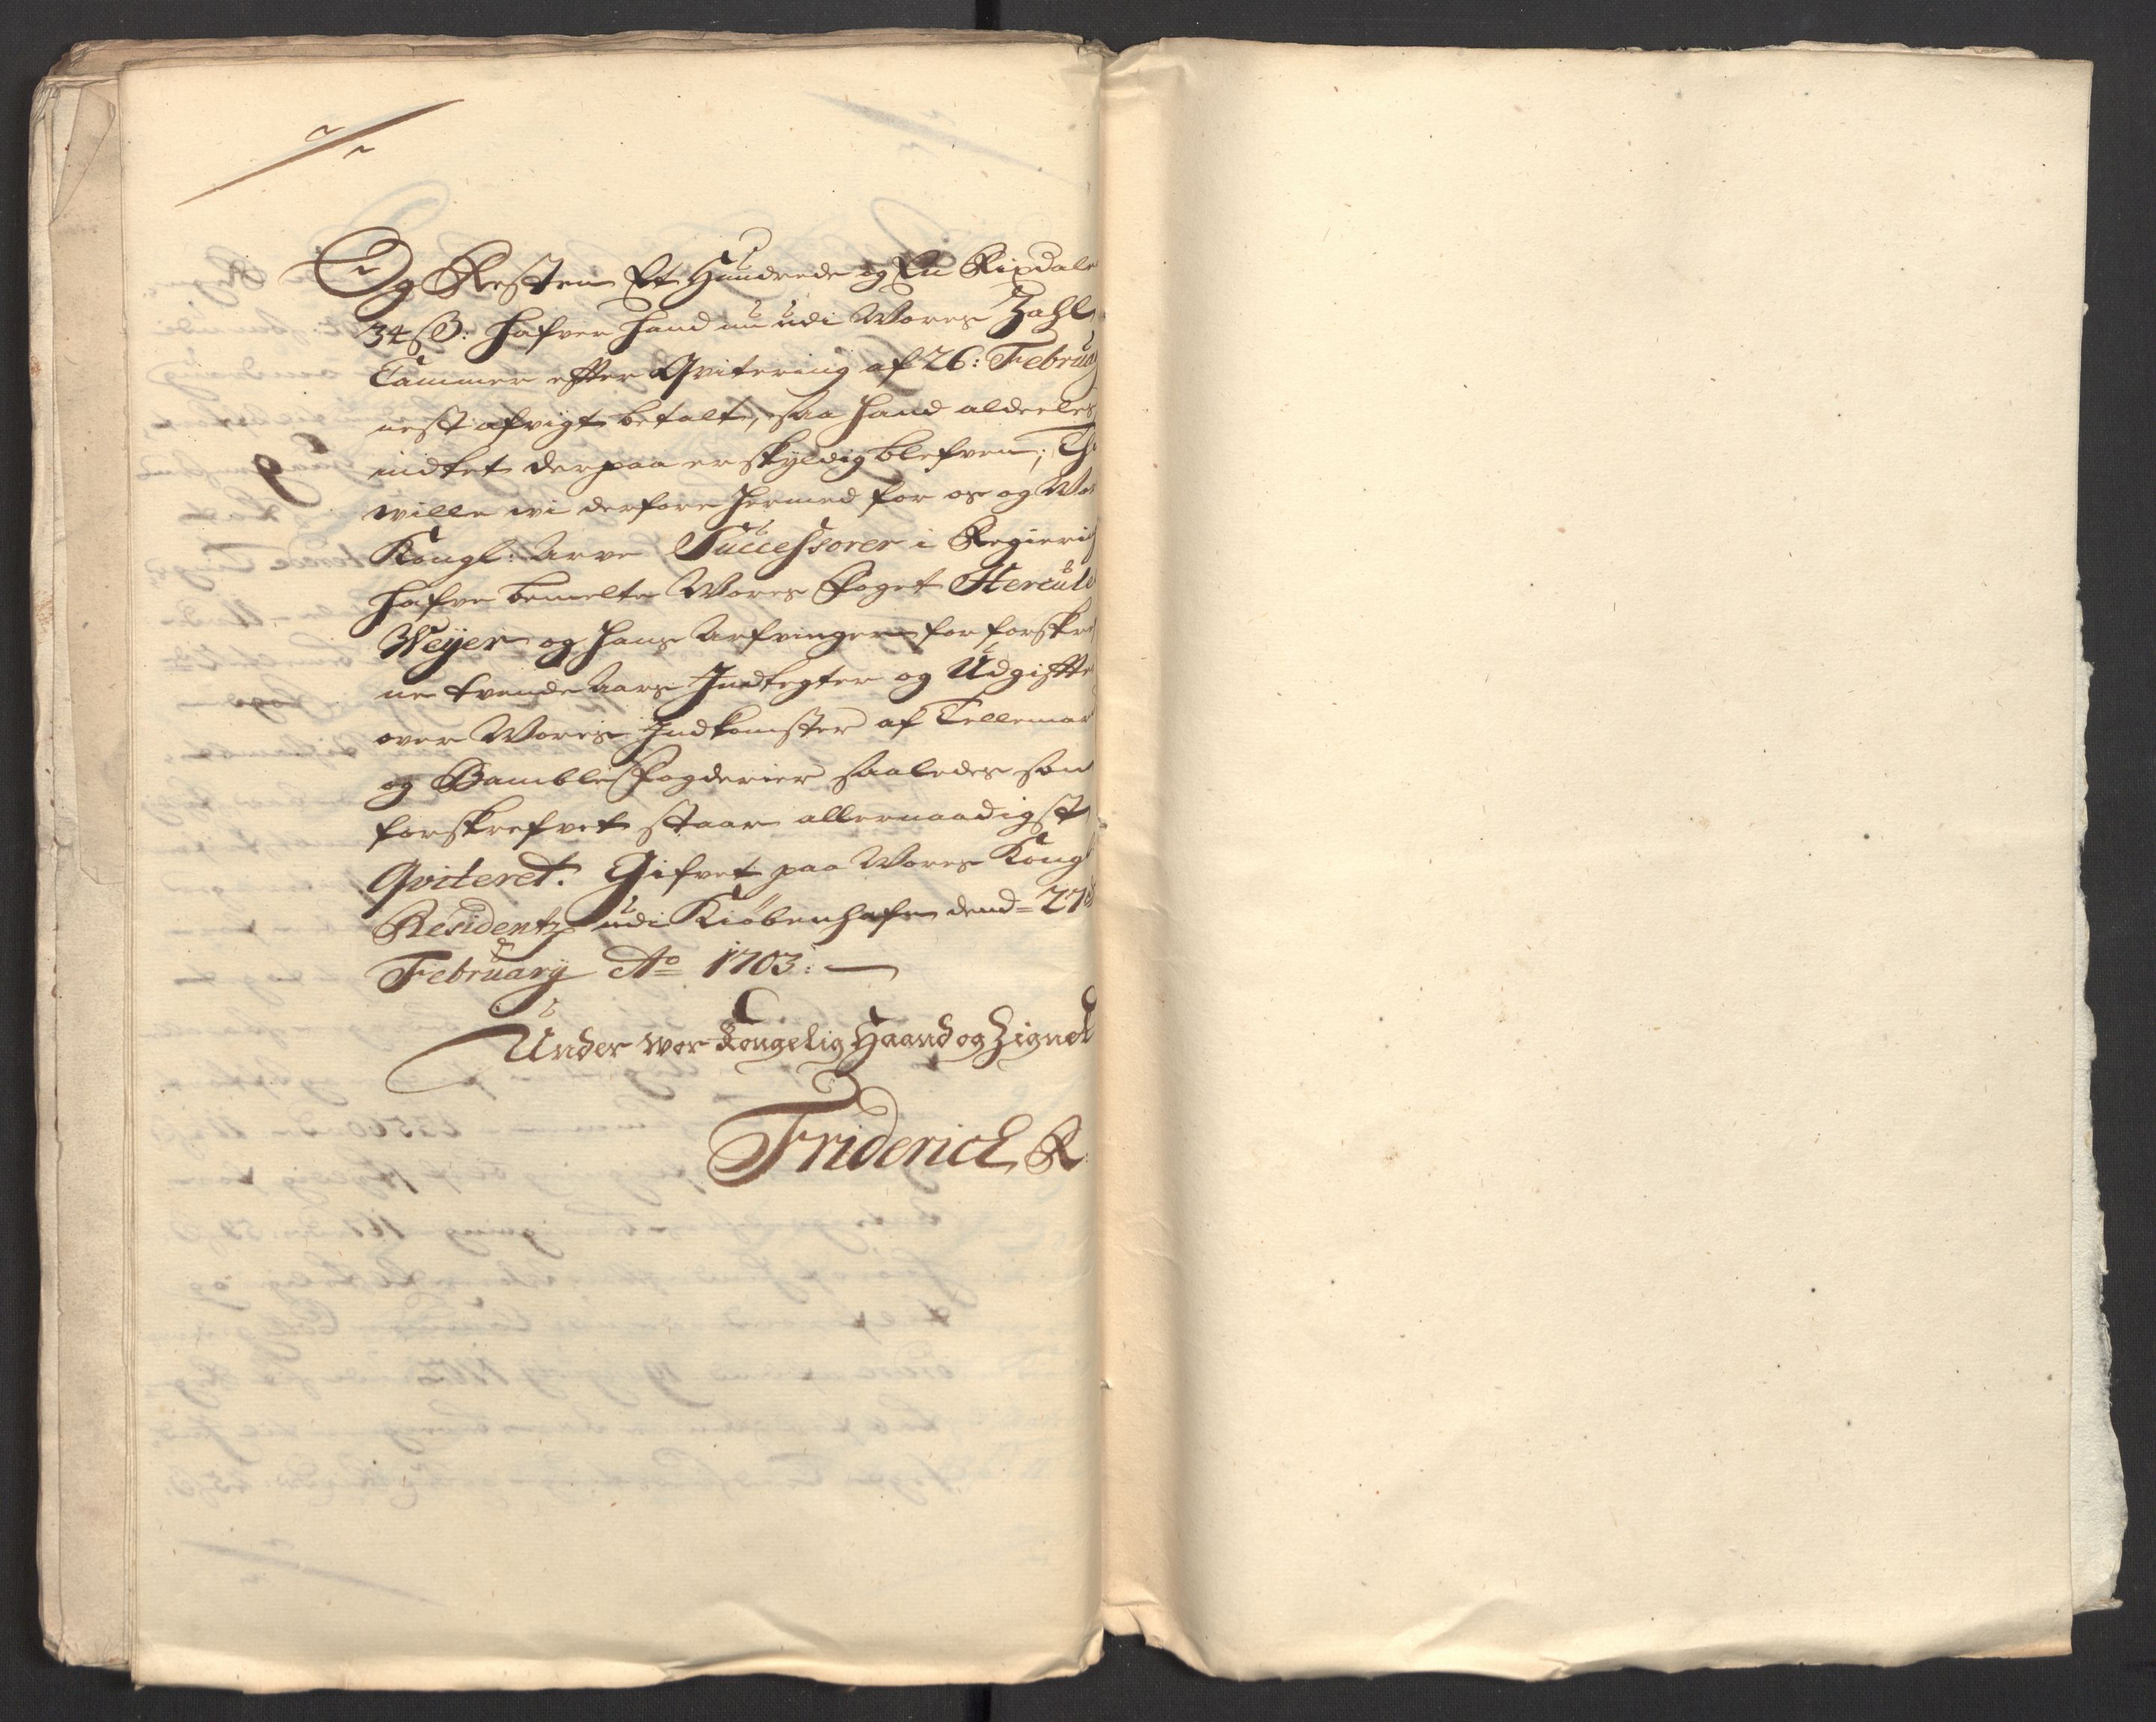 Og Resten Et Hundrede og En Rixdale
34 ß: hafver hand nu udi Wores Zahl
Cammer efter Qvitering af 26: Februa
nest afvigt betalt, saa hand aldeeles
indtet derpaa er skyldig blefven; Th
wille wi derfore hermed for os og Wo
Kongl: Arve Successorer i Regiering
hafve bemelte Wores Foget Hercule
Weyer og hans Arfvinger for forskre
ne tvende Aars Indtegter og Udgiffte
over Wores Indkomster af Tellemar
og Bamble Fogderier saaledes som
forskrefvet staar allernaadigst
Qviteret. Gifvet paa Wores Kongl
Residentz udi Kiöbenhafn dend 27
February Ao 1703:
Under wor Kongelig Haand og Zignet
Friderich R: